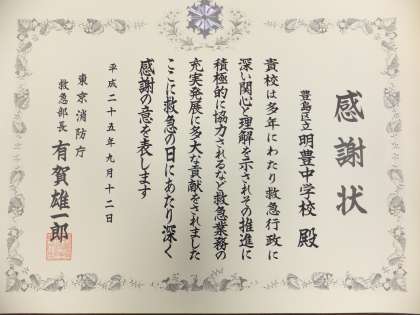 感謝状
豊島区立明豊中学校 殿
貴校は多年にわたり救急行政に
深い関心と理解を示されその推進に
積極的に協力されるなど救急業務の
充実発展に多大な貢献をされました
ここに救急の日にあたり深く
感謝の意を表します
平成二十五年九月十二日
東京消防庁
救急部長 有賀雄一郎